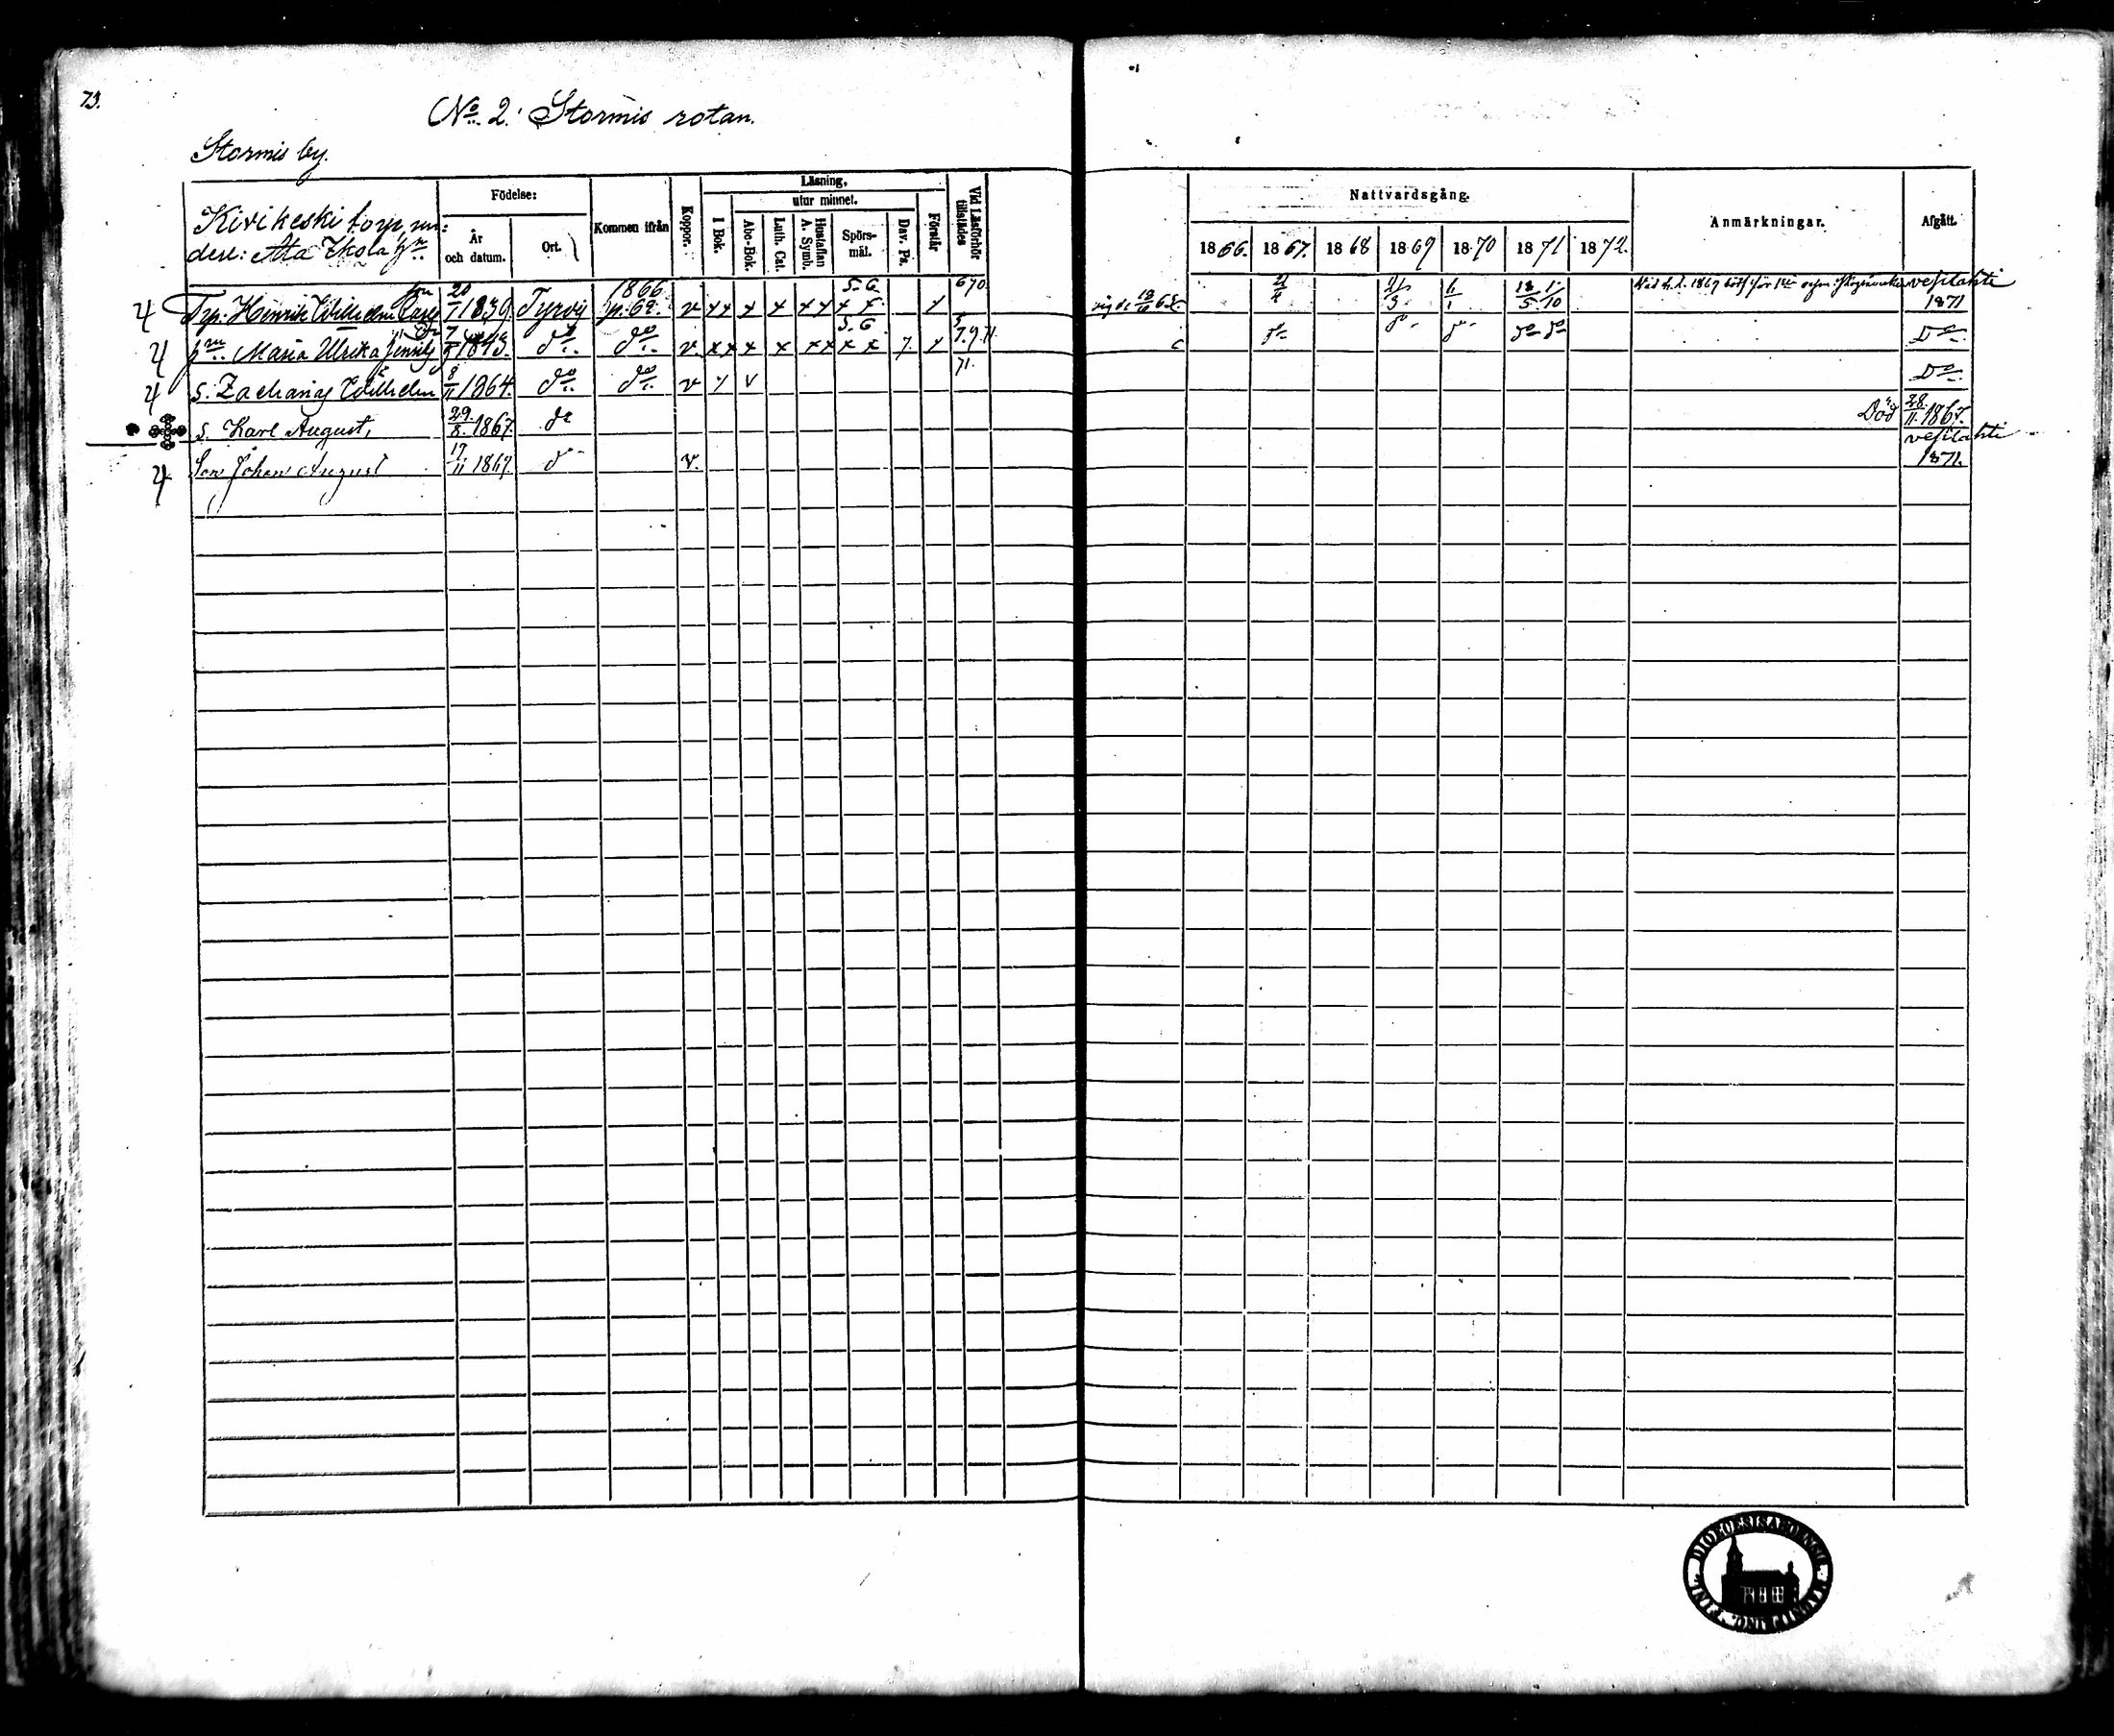 73.
No. 2. Stormis rotan.
Stormis by.
Kivikeski torp, un-
der: Ala Ikola
Födelse:
År och datum.
Ort.
Kommen ifrån
Koppor.
Läsning.
utur minnet.
I Bok.
Abc-Bok.
Luth. Cat.
Hustaflan A. Symb.
Spörs-mål.
Dav. Ps.
Förstår
Vid Läsförhör tillstädes
Nattvardsgång.
1866. 1867. 1868 1869 1870 1871 1872.
Anmärkningar.
Afgått.
Trp. Henrik Wilhelm 20/7 1839. Tyrvis 1866 p. 62. v 5. 6. 670 2/4 6/1 18/5 1/10 Vesilahti 1871
Maria Ulrika do do v. 5. 6. 7. do do do do Do
s. Zacharias Wilhelm 8/11 1864. do do v v 71. Do
s. Karl August, 29/8 1867. do Död 28/11 1867.
Son Johan August 17/11 1869. do v. Vesilahti 1871.